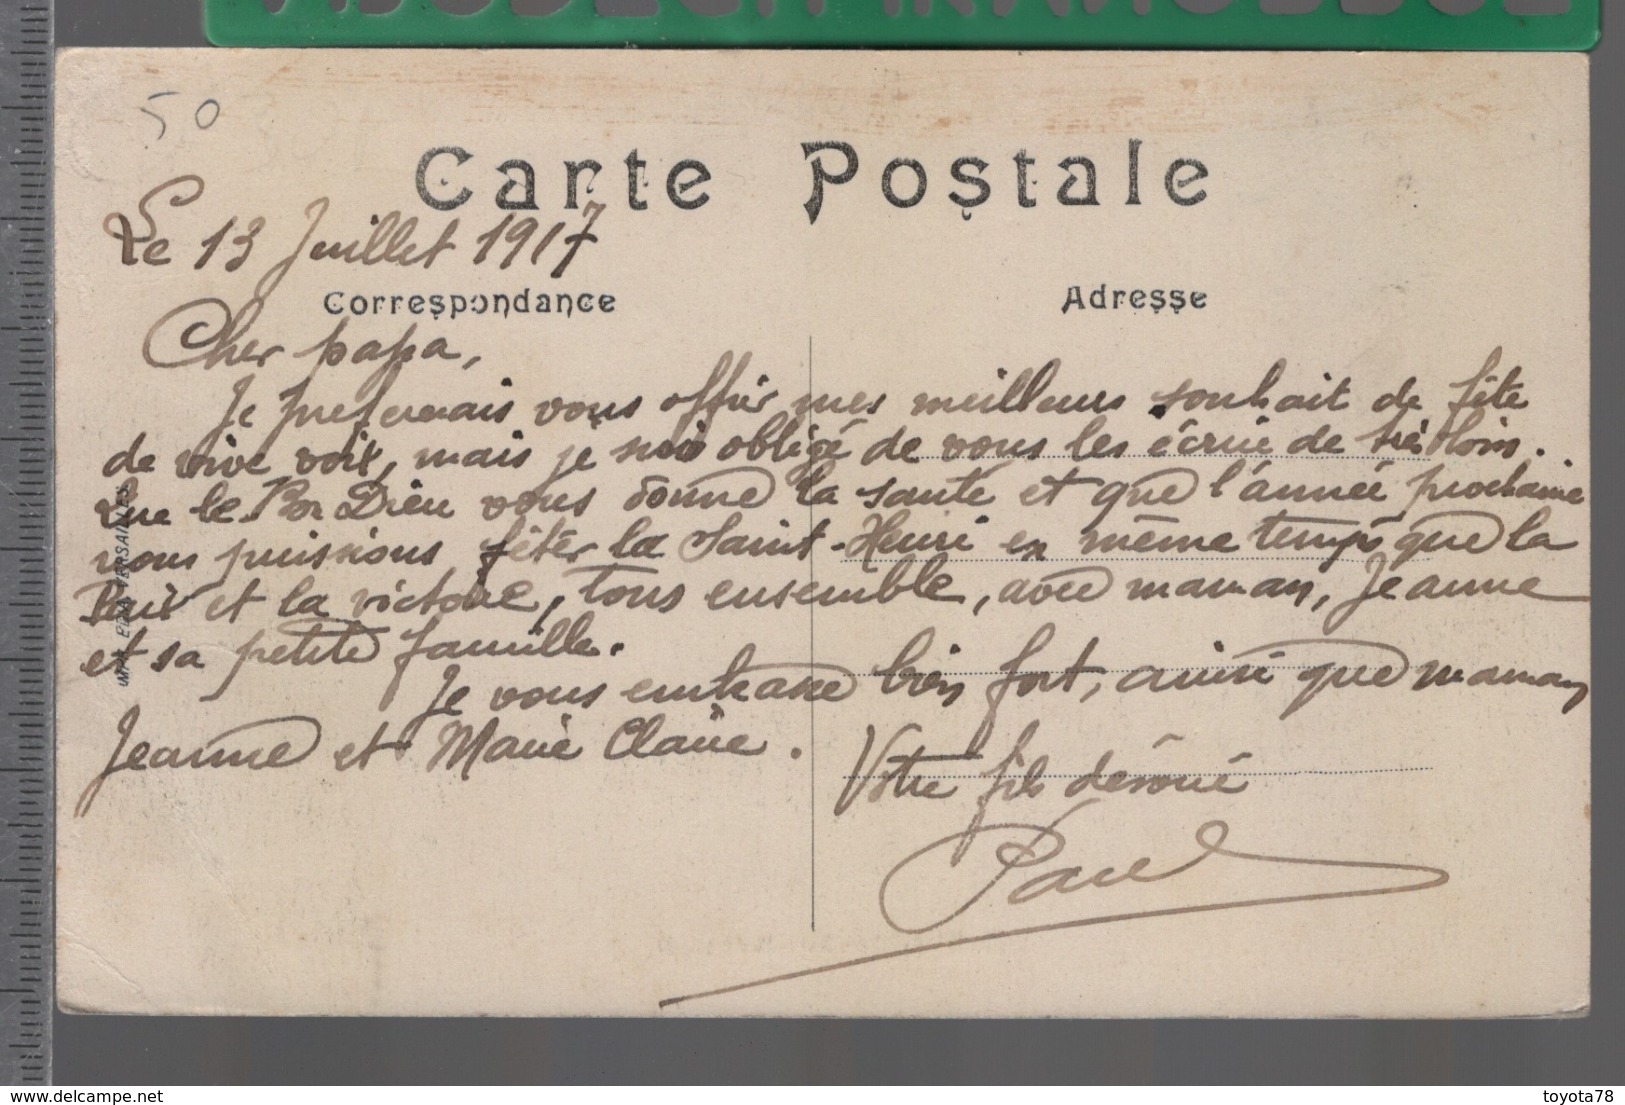 50
Carte Postale
Le 13 Juillet 1917
Correspondance
Adresse
Cher papa,
Je prefererais vous offrir mes meilleurs souhait de fête
de vive voix, mais je suis obligé de vous les écrire de très loin.
Que le Bon Dieu vous donne la santé et que l'année prochaine
nous puissions fêter la Saint-Henri en même temps que la
Paix et la victoire, tous ensemble, avec maman, Jeanne
et sa petite famille.
Je vous embrasse bien fort, ainsi que maman
Jeanne et Marie Claire.
Votre fils dévoué
Paul
delcampe.net
toyota78